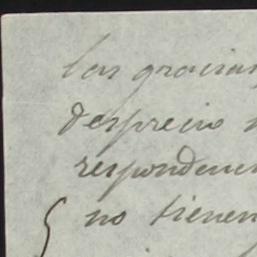 las gracias
desprecio
respondenci
no tienen